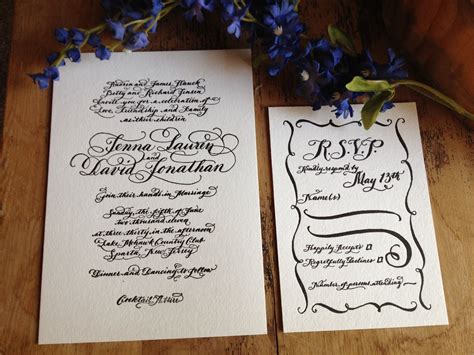 Karen and James Hauck
Betty and Richard Jensen
Invite you for a celebration of
Love, Friendship and Family
as their children
Jenna Lauren
and
David Jonathan
Join their hands in Marriage
Sunday, the fifth of June
two thousand eleven
at three thirty in the afternoon
Lake Mohawk Country Club
Sparta, New Jersey
Dinner and Dancing to follow
Cocktail Attire
R.S.V.P
Kindly respond by
May 13th
Name(s)
Happily Accepts
Regretfully Declines
Number of persons attending